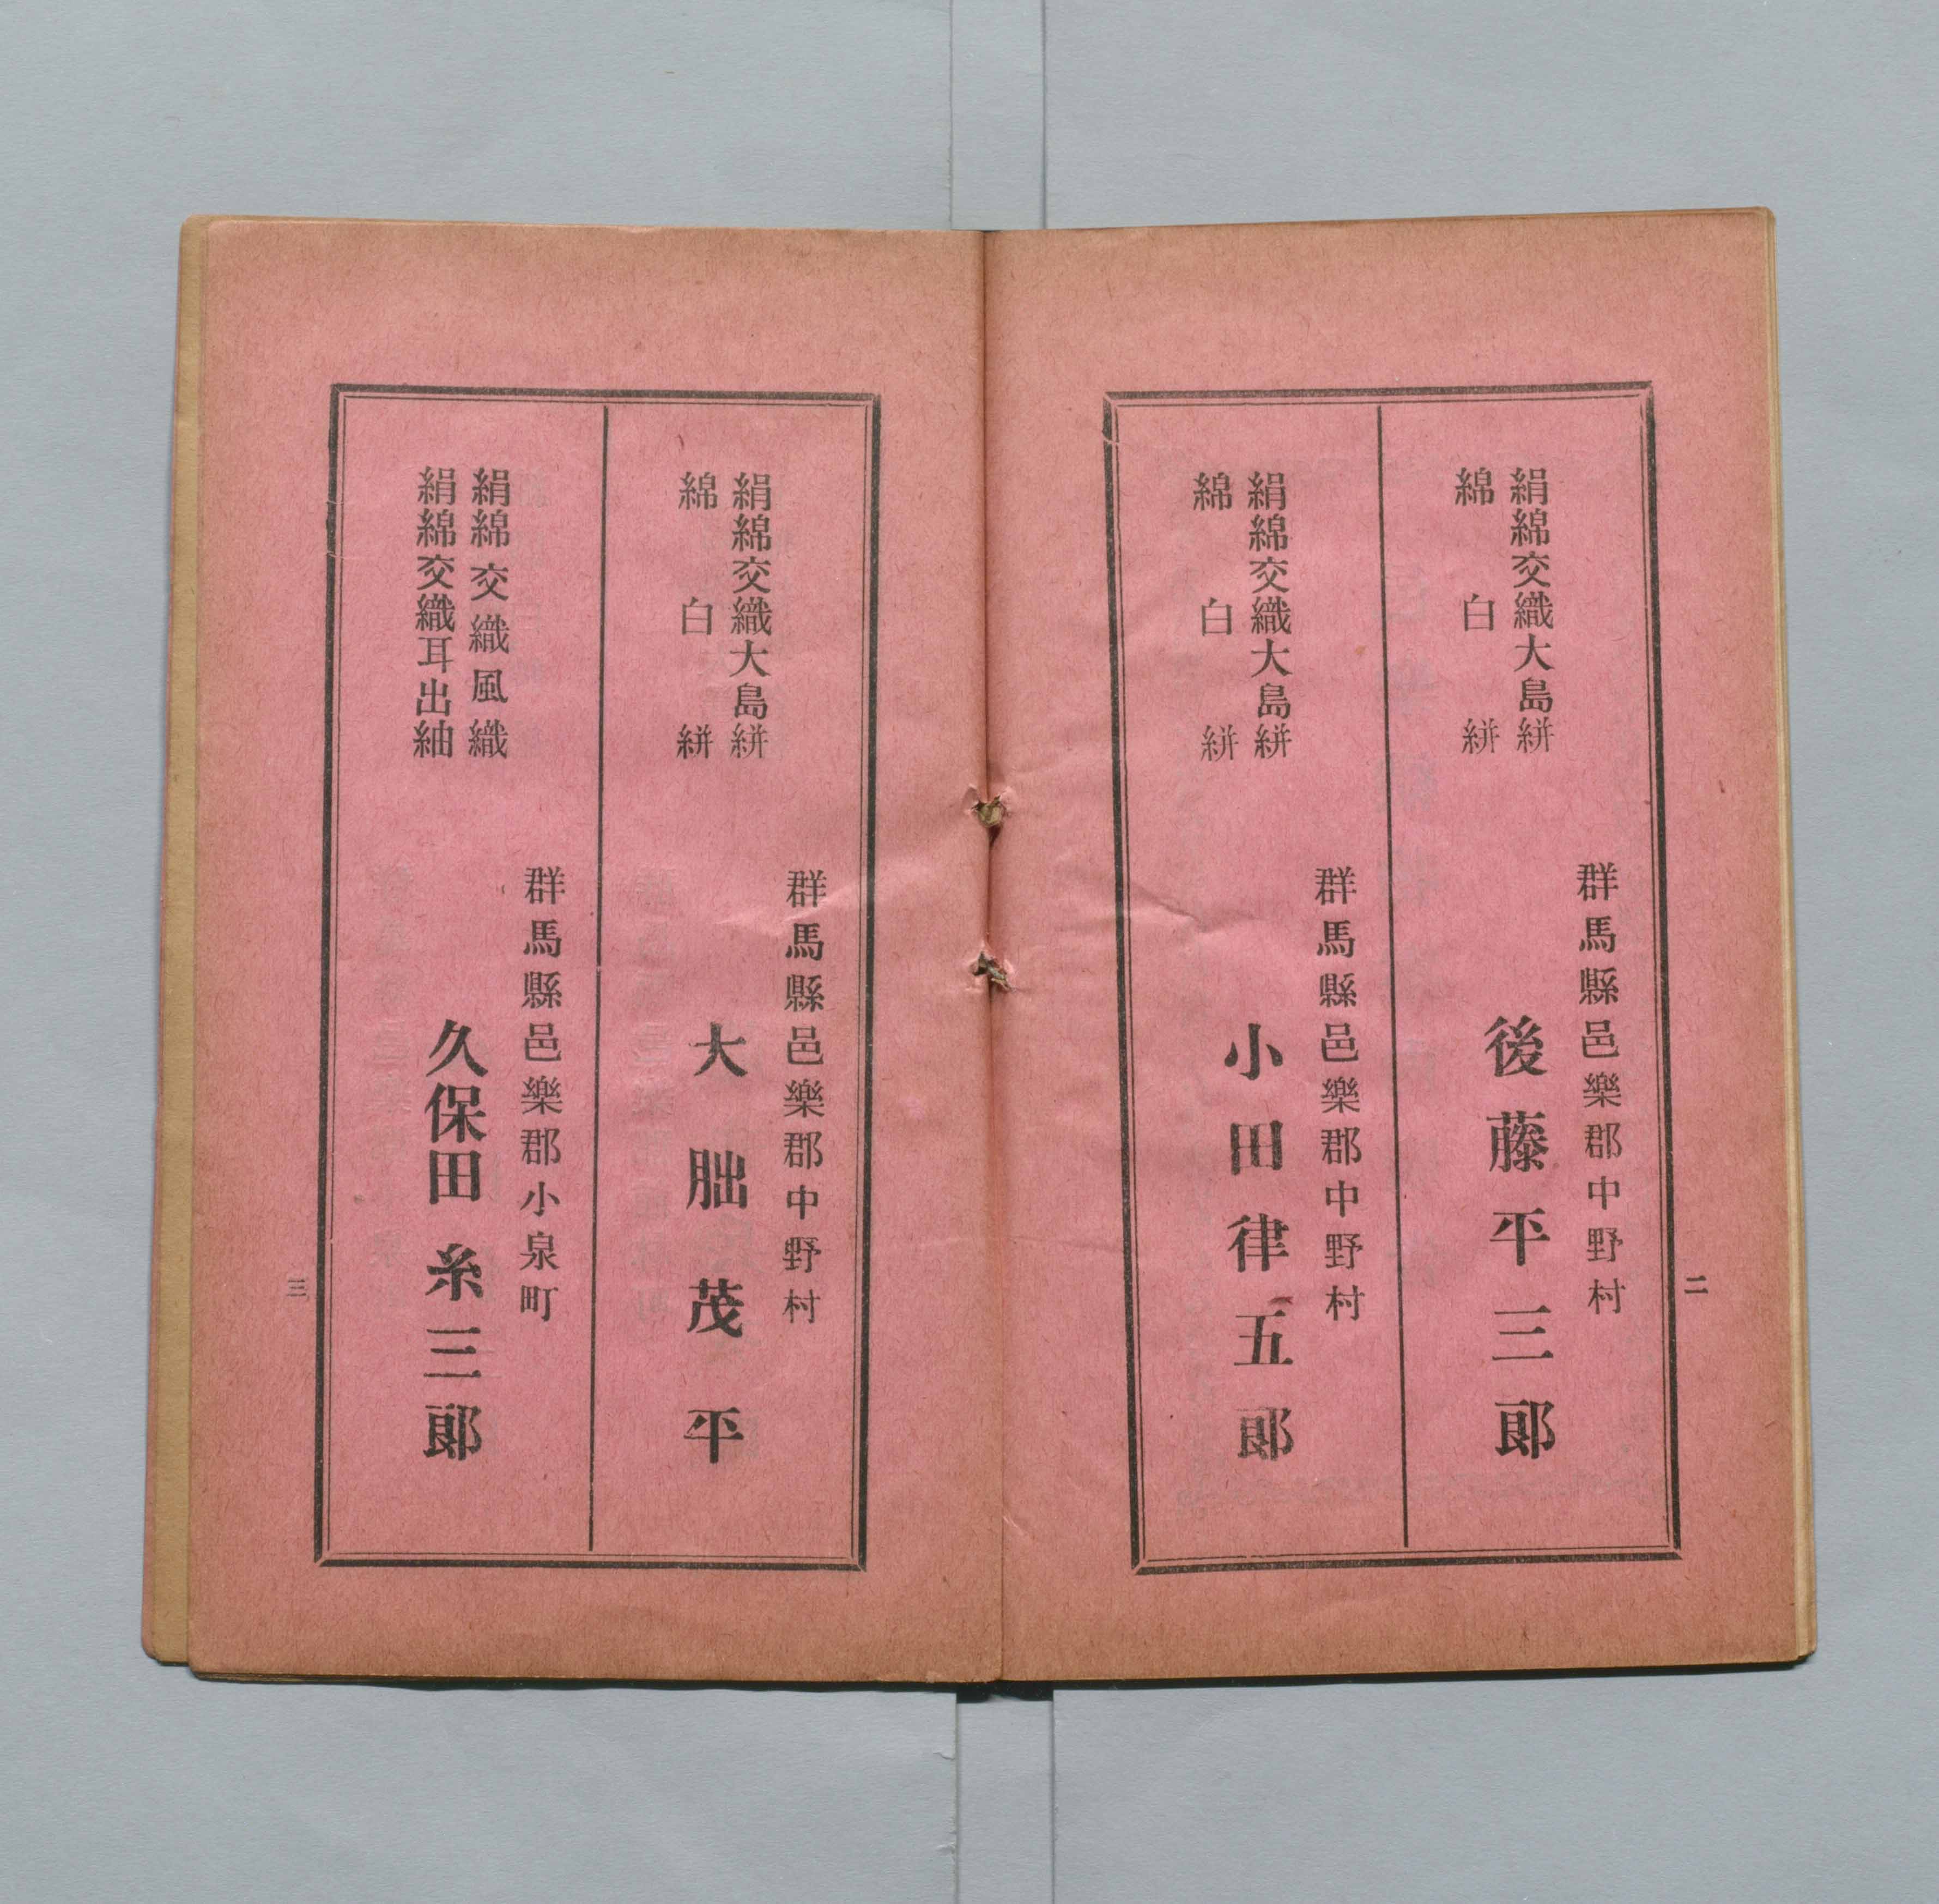 絹綿交織大島絣
綿白絣
群馬縣邑樂郡中野村
後藤平三郎
絹綿交織大島絣
綿白絣
群馬縣邑樂郡中野村
小田律五郎
二
絹綿交織大島絣
綿白絣
群馬縣邑樂郡中野村
大朏茂平
絹綿交織風織
絹綿交織耳出紬
群馬縣邑樂郡小泉町
久保田糸三郎
三